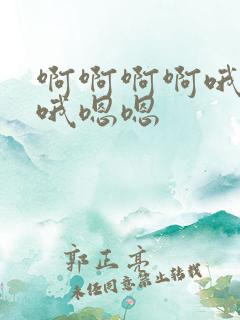 啊啊啊啊哦
哦嗯嗯
郭正亮
未经同意禁止转载